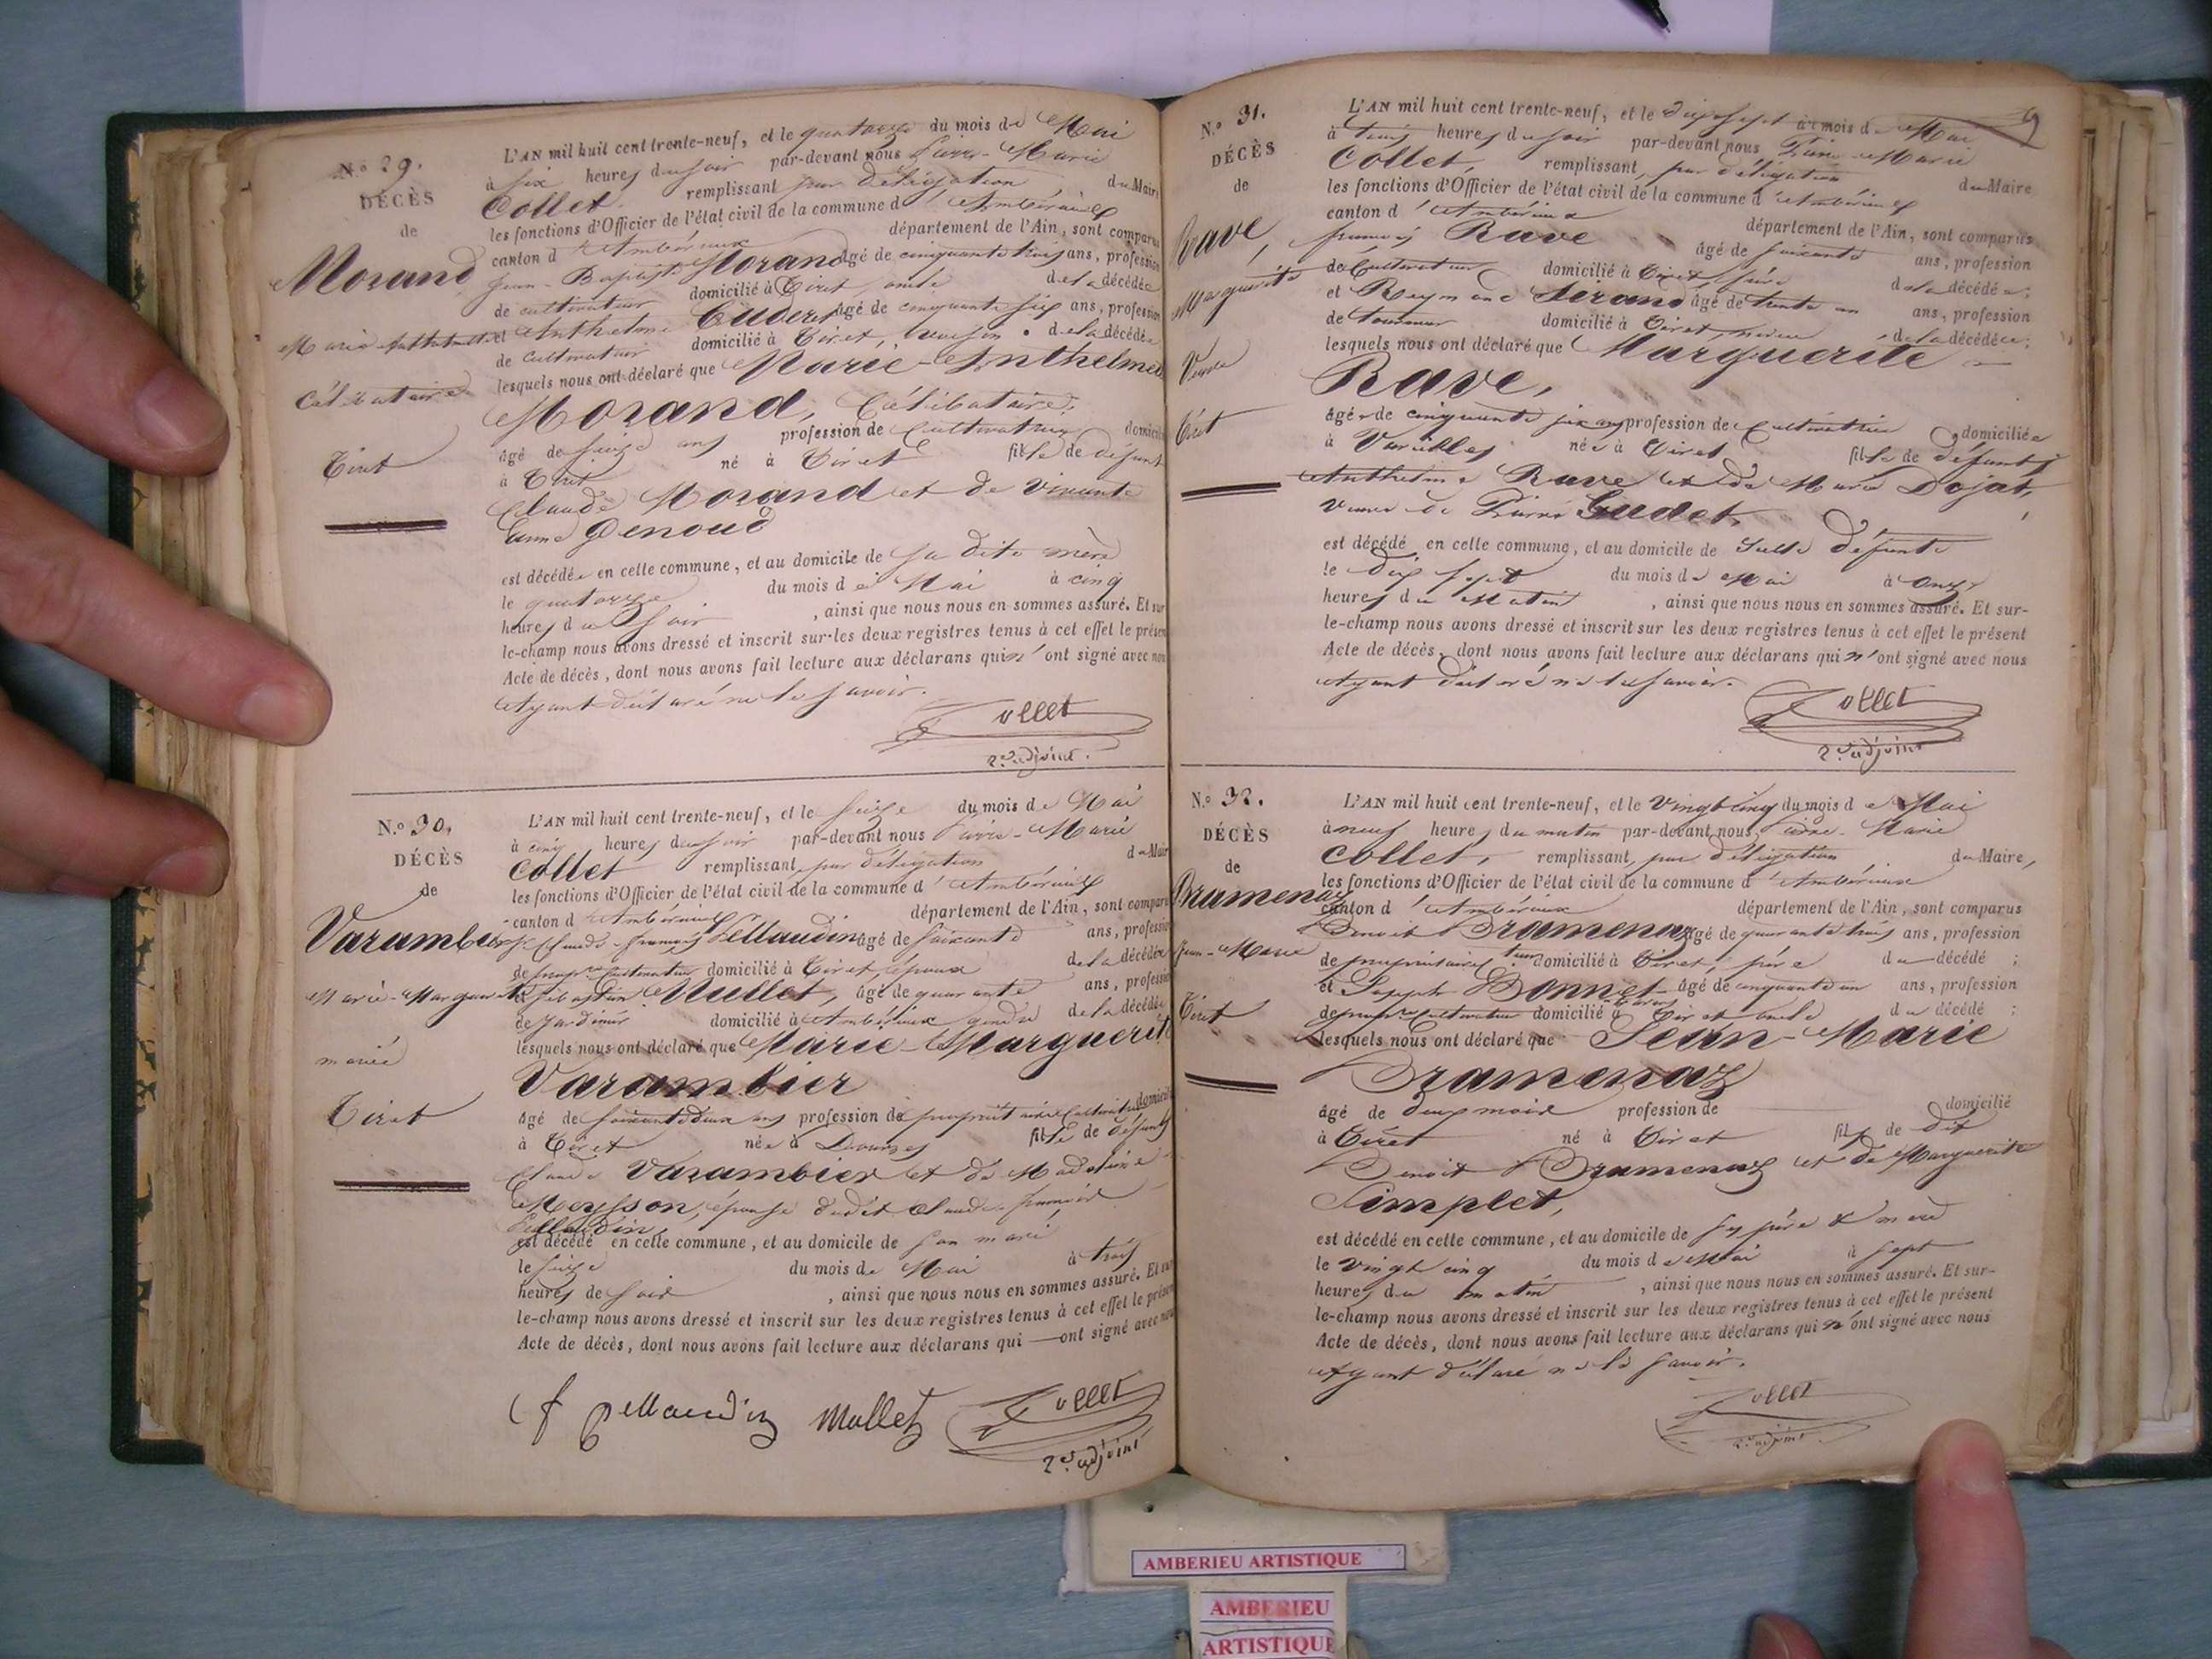 N.º 29.
DÉCÈS
de
Morand
Marie
Célibataire
Tiret
L'AN mil huit cent trente-neuf, et le quatorze du mois de Mai
à six heures du soir par-devant nous Pierre-Marie
Collet remplissant par délégation du Maire
les fonctions d'Officier de l'état civil de la commune d'Ambérieux
canton d'Ambérieux département de l'Ain, sont comparus
Jean-Baptiste Morand âgé de cinquante trois ans, profession
de cultivateur domicilié à Tiret oncle de la décédée
et Anthelme Cuderet âgé de cinquante six ans, profession
de cultivateur domicilié à Tiret, voisin de la décédée
lesquels nous ont déclaré que Marie-Anthelmette
Morand, Célibataire,
âgé de seize ans profession de Cultivatrice domicil
à Tiret né à Tiret fille de défunt
Claude Morand et de vivante
Genoud
est décédée en celle commune, et au domicile de sa dite mère
le quatorze du mois de Mai à cinq
heures du soir, ainsi que nous nous en sommes assuré. Et sur
le-champ nous avons dressé et inscrit sur les deux registres tenus à cet effet le présent
Acte de décès, dont nous avons fait lecture aux déclarans qui n'ont signé avec nous
ayant déclaré ne le savoir.
Collet
2e adjoint.
N.º 30.
DÉCÈS
de
Varambier
Marie-Marguerite
mariée
Tiret
L'AN mil huit cent trente-neuf, et le seize du mois de Mai
à cinq heures du soir par-devant nous Pierre-Marie
Collet remplissant par délégation du Maire
les fonctions d'Officier de l'état civil de la commune d'Ambérieux
canton d'Ambérieux département de l'Ain, sont comparus
Claude-françois Pellaudin âgé de soixante ans, profession
de propre Cultivateur domicilié à Tiret, époux de la décédée
et Sébastien Mullet, âgé de quarante ans, profession
de Jardinier domicilié à Ambérieux gendre de la décédée
lesquels nous ont déclaré que Marie-Marguerite
Varambier
âgé de soixante deux ans profession de propriétaire Cultivatrice domicil
à Tiret née à Douvres fille de défunts
Claude Varambier et de Madeleine
Meysson, épouse dudit Claude françois
Pellaudin,
est décédé en celle commune, et au domicile de son mari
le seize du mois de Mai à trois
heures de soir, ainsi que nous nous en sommes assuré. Et sur
le-champ nous avons dressé et inscrit sur les deux registres tenus à cet effet le présent
Acte de décès, dont nous avons fait lecture aux déclarans qui ont signé avec nous
C f pellaudin Mollet Collet
2e adjoint
9
N.º 31.
DÉCÈS
de
Rave,
Marguerite
Veuve
Tiret
L'AN mil huit cent trente-neuf, et le dix sept du mois de Mai
à trois heures du soir par-devant nous Pierre-Marie
Collet, remplissant par délégation du Maire
les fonctions d'Officier de l'état civil de la commune d'Ambérieux
canton d'Ambérieux département de l'Ain, sont comparus
françois Rave âgé de soixante ans, profession
de Cultivateur domicilié à Tiret, frère de la décédée;
et Reymond Sérand âgé de trente un ans, profession
de tourneur domicilié à Tiret, neveu de la décédée;
lesquels nous ont déclaré que Marguerite
Rave,
âgée de cinquante six ans profession de Cultivatrice domiciliée
à Vareilles née à Tiret fille de défunts
Anthelme Rave et de Marie Dojat,
veuve de Pierre Gudet,
est décédé en celle commune, et au domicile de Susdte défunte
le dix sept du mois de Mai à Onze
heures du Matin, ainsi que nous nous en sommes assuré. Et sur-
le-champ nous avons dressé et inscrit sur les deux registres tenus à cet effet le présent
Acte de décès, dont nous avons fait lecture aux déclarans qui n'ont signé avec nous
ayant déclaré ne le savoir.
Collet
2e adjoint
N.º 32.
DÉCÈS
de
Bramenaz
Jean-Marie
Tiret
L'AN mil huit cent trente-neuf, et le vingt cinq du mois de Mai
à neuf heures du matin par-devant nous Pierre-Marie
Collet, remplissant par délégation du Maire,
les fonctions d'Officier de l'état civil de la commune d'Ambérieux
canton d'Ambérieux département de l'Ain, sont comparus
Benoit Bramenaz âgé de quarante trois ans, profession
de propriétaire domicilié à Tiret, père du décédé;
et Joseph Bonnet âgé de cinquante un ans, profession
de propre Cultivateur domicilié à Tiret oncle du décédé;
lesquels nous ont déclaré que Jean-Marie
Bramenaz
âgé de deux mois profession de domicilié
à Tiret né à Tiret fils de dit
Benoit Bramenaz et de Marguerite
Simplet,
est décédé en celle commune, et au domicile de ses père & mère
le vingt cinq du mois de Mai à sept
heures du matin, ainsi que nous nous en sommes assuré. Et sur-
le-champ nous avons dressé et inscrit sur les deux registres tenus à cet effet le présent
Acte de décès, dont nous avons fait lecture aux déclarans qui n'ont signé avec nous
ayant déclaré ne le savoir.
Collet
2e adjoint
AMBERIEU ARTISTIQUE
AMBERIEU
ARTISTIQUE